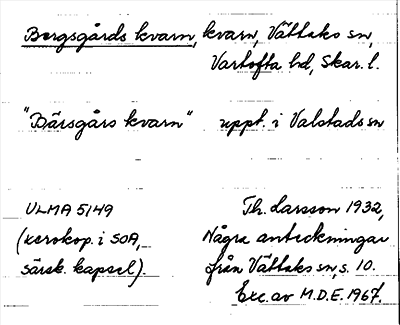 Bergsgårds kvarn, kvarn, Vättaks sn,
Vartofta hd, Skar. l.
"Bärsgårs kvarn" uppt. i Valstads sn
ULMA 5149 Th. Larsson 1932,
(xerokop. i SOA, Några anteckningar
särsk. kapsel). från Vättaks sn, s. 10.
Exc. av M.D.E. 1967.